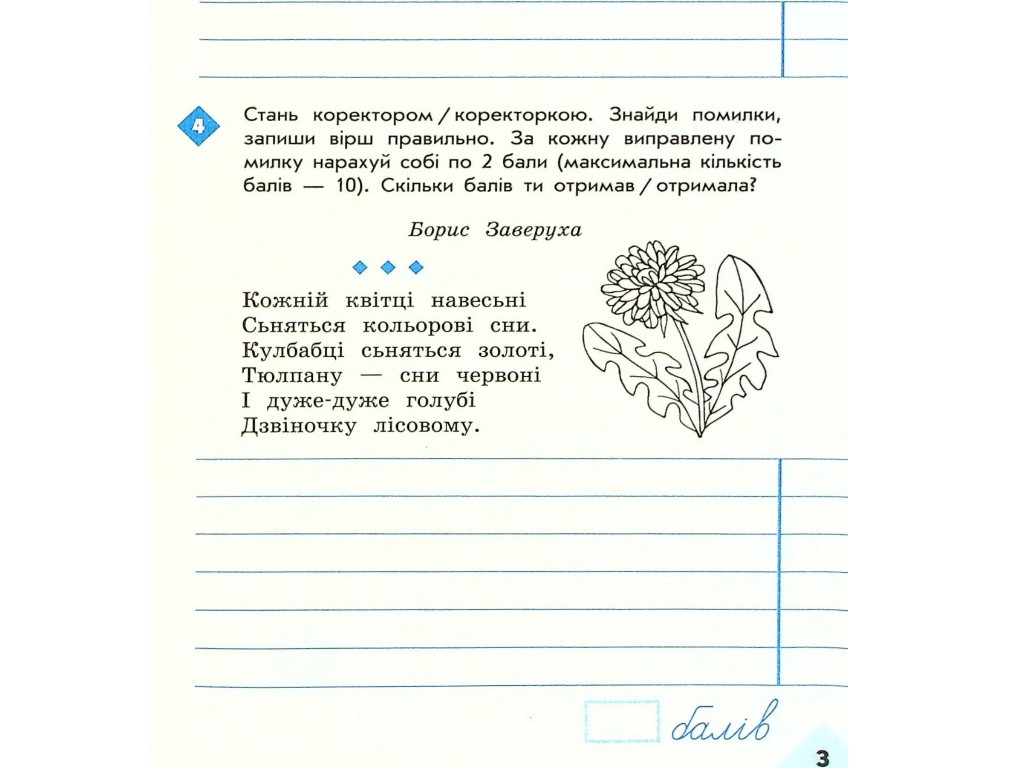 4
Стань коректором / коректоркою. Знайди помилки,
запиши вірш правильно. За кожну виправлену по-
милку нарахуй собі по 2 бали (максимальна кількість
балів — 10). Скільки балів ти отримав / отримала?
Борис Заверуха
Кожній квітці навесьні
Сьняться кольорові сни.
Кулбабці сьняться золоті,
Тюлпану — сни червоні
І дуже-дуже голубі
Дзвіночку лісовому.
балів
3